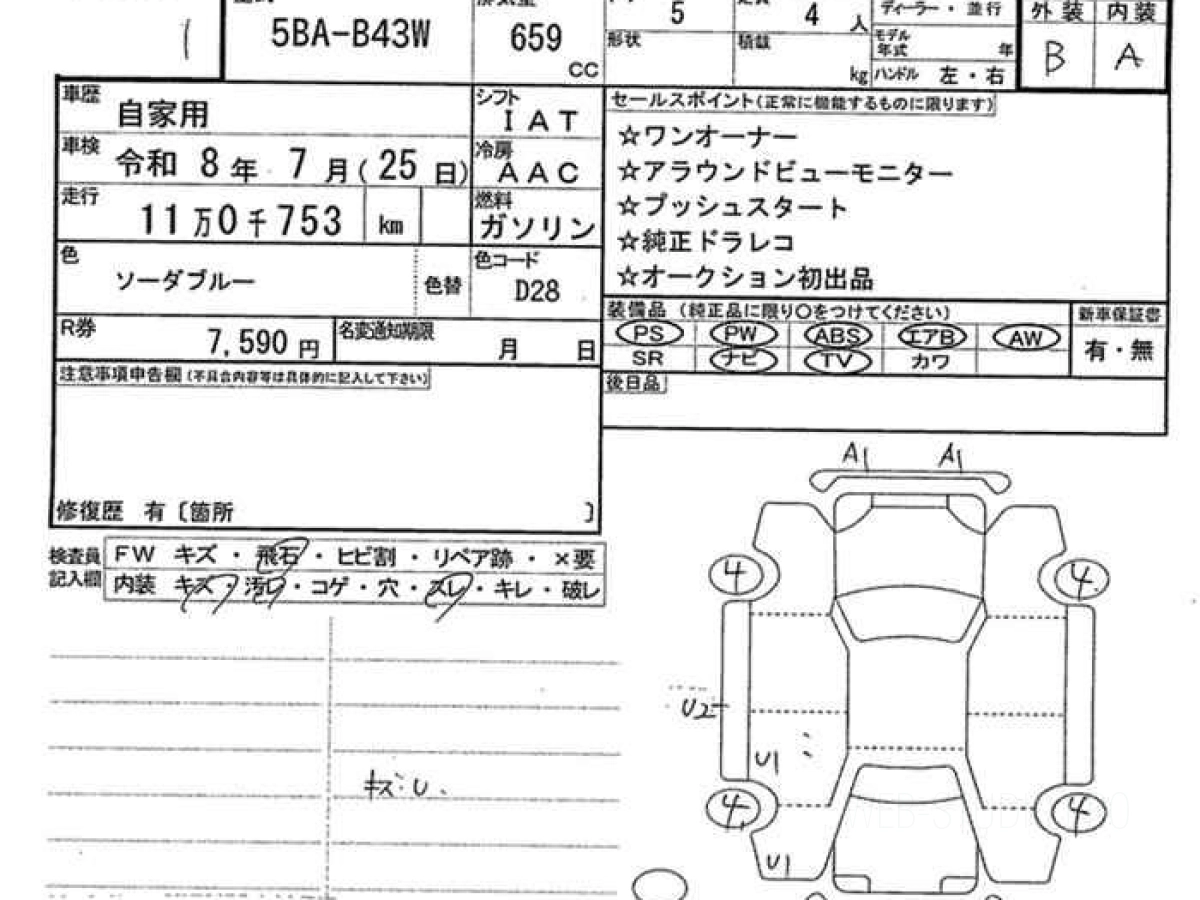 5BA-B43W
659
CC
5
形状
4 人
積載
kg
ディーラー・並行
モデル
年式 年
ハンドル 左・右
外装 内装
B A
車歴 自家用
シフト IAT
車検 令和 8年 7月(25日)
冷房 AAC
走行 11万0千753 km
燃料 ガソリン
色 ソーダブルー
色替
色コード D28
R券 7,590円
名変通知期限 月 日
注意事項申告欄(不具合内容等は具体的に記入して下さい)
修復歴 有〔箇所 〕
セールスポイント(正常に機能するものに限ります)
☆ワンオーナー
☆アラウンドビューモニター
☆プッシュスタート
☆純正ドラレコ
☆オークション初出品
装備品 (純正品に限り〇をつけてください)
新車保証書
PS PW ABS エアB AW
SR ナビ TV カワ
有・無
後日品
検査員
記入欄
FW キズ・飛石・ヒビ割・リペア跡・×要
内装 キズ・汚レ・コゲ・穴・スレ・キレ・破レ
キズ・U.
A1 A1
4 4
U2
U1
4 4
U1